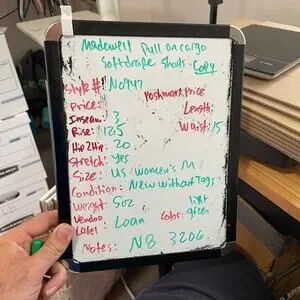 Madewell Pull on cargo
Softdrape shorts - Copy
Style #: N0947
Poshmark Price
Price:
Length:
Inseam: 3
Rise: 12.5
Waist: 15
Hip 2 Hip: 20
Stretch: yes
Size: US Women's M
Condition: New without Tags
Weight: 5oz
Vendoo Label: Loan
Color: light green
Notes: N8 3206